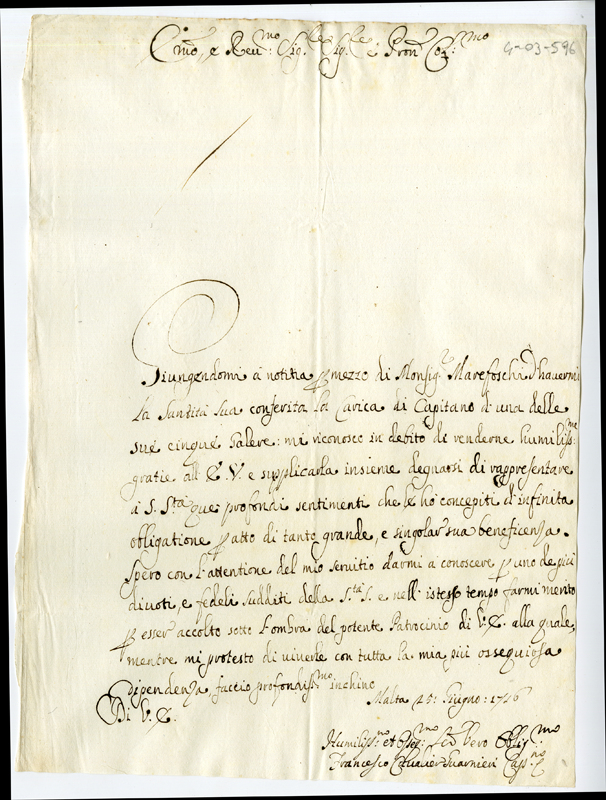 Em.mo, e Reu.mo Sig.le Sig.le e Pron Col.mo
4-03-596
Giungendomi à notitia p mezzo di Monsig.r Marefoschi d'hauermi
la Santità Sua conferita la Carica di Capitano d'una delle
sue cinque Galere: mi riconosco in debito di renderne humiliss.me
gratie all' E.V. e supplicarla insieme degnarsi di rappresentare
à S. S.tà quei profondi sentimenti che ho concepiti d'infinita
obligatione p atto di tanto grande, e singolar sua beneficenza.
Spero con l'attentione del mio seruitio darmi a conoscere p uno de più
diuoti, e fedeli sudditi della S.tà S. e nell' istesso tempo farmi merito
p esser accolto sotto l'ombra del potente Patrocinio di V.E. alla quale,
mentre mi protesto di viuerle con tutta la mia più ossequiosa
dipendenza, faccio profondiss.mo inchino
Di V.E.
Malta 25: Giugno: 1716
Humiliss.mo et Osseq.mo Ser Vero Oblig.mo
Francesco Caualier Guarnieri Cap.no